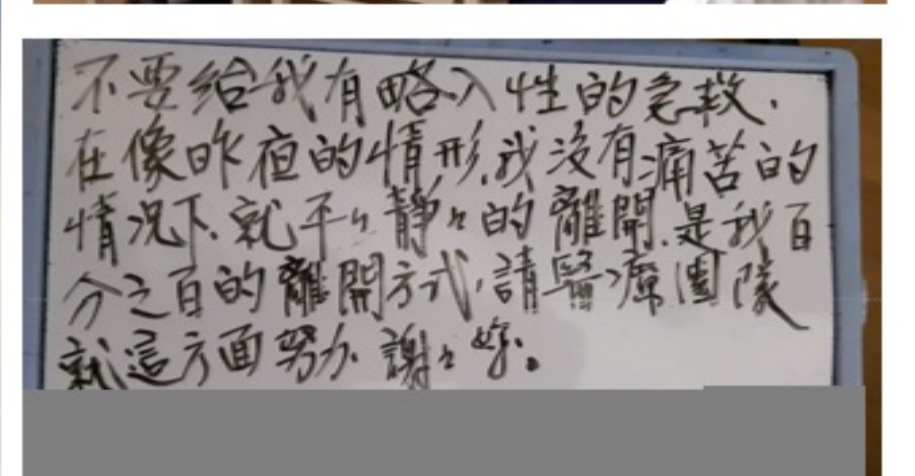 不要給我有略入性的急救.
在像昨夜的情形,我沒有痛苦的
情況下.就平々靜々的離開.是我百
分之百的離開方式,請醫療團隊
就這方面努力.謝々妳。